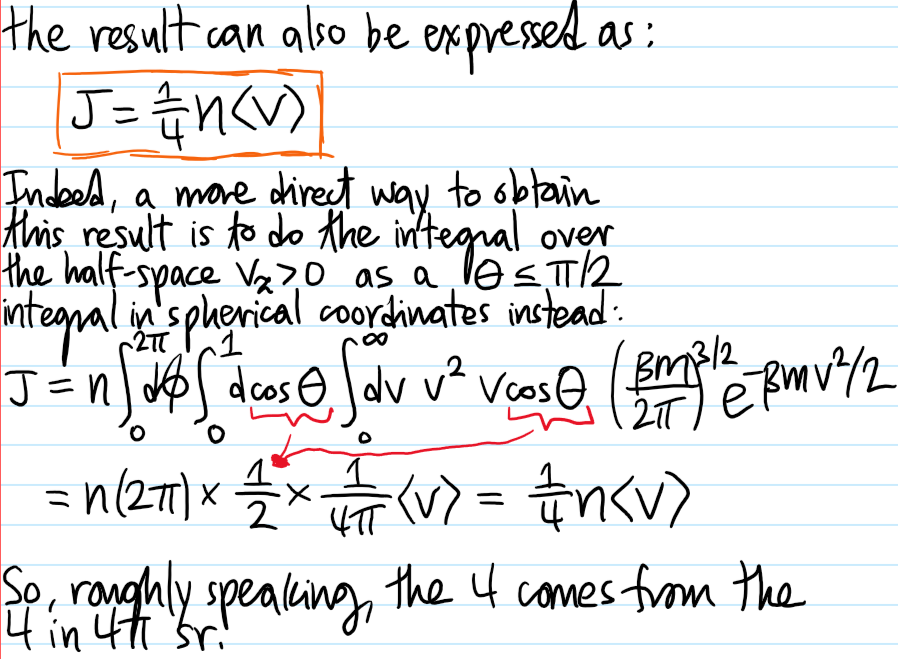 the result can also be expressed as:
J = 1/4 n⟨v⟩
Indeed, a more direct way to obtain
this result is to do the integral over
the half-space vₓ>0 as a θ ≤ π/2
integral in spherical coordinates instead:
J = n ∫₀^2π dϕ ∫₀^1 dcosθ ∫₀^∞ dv v² vcosθ (βm/2π)^3/2 e^-βmv²/2
= n(2π) × 1/2 × 1/4π ⟨v⟩ = 1/4 n⟨v⟩
So, roughly speaking, the 4 comes from the
4 in 4π sr.